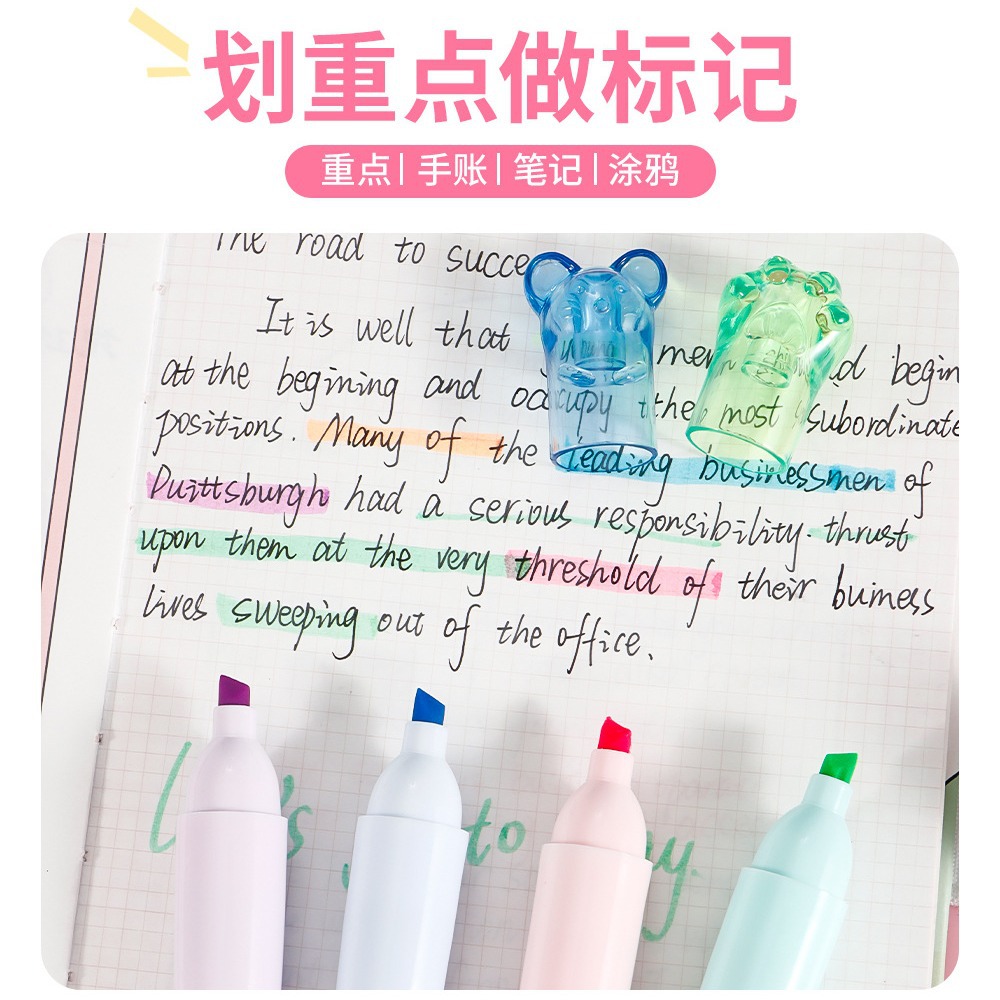 划重点做标记
重点|手账|笔记|涂鸦
The road to succe
It is well that men d begin
at the begining and occupy the most subordinate
positions. Many of the leading businessmen of
Puittsburgh had a serious responsibility. thrust
upon them at the very threshold of their buiness
lives sweeping out of the office.
to